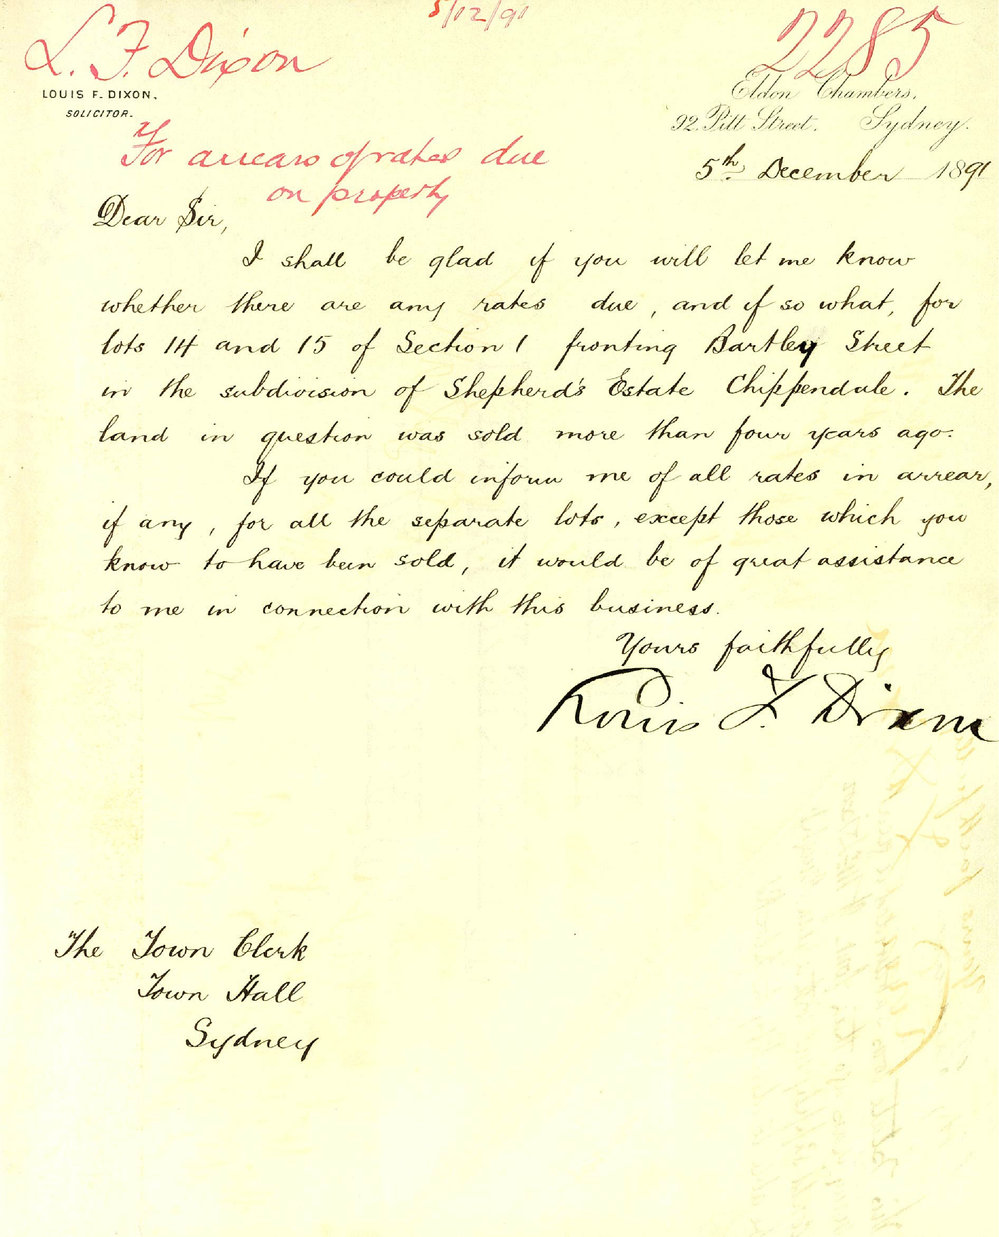 5/12/91
L. F. Dixon
2285
LOUIS F. DIXON.
SOLICITOR.
Eldon Chambers,
92. Pitt Street. Sydney.
For arrears of rates due
on property
5th December 1891
Dear Sir,
I shall be glad if you will let me know
whether there are any rates due, and if so what, for
lots 14 and 15 of Section 1 fronting Bartley Street
in the subdivision of Shepherd's Estate Chippendale. The
land in question was sold more than four years ago.
If you could inform me of all rates in arrear,
if any, for all the separate lots, except those which you
know to have been sold, it would be of great assistance
to me in connection with this business.
Yours faithfully
Louis F. Dixon
The Town Clerk
Town Hall
Sydney